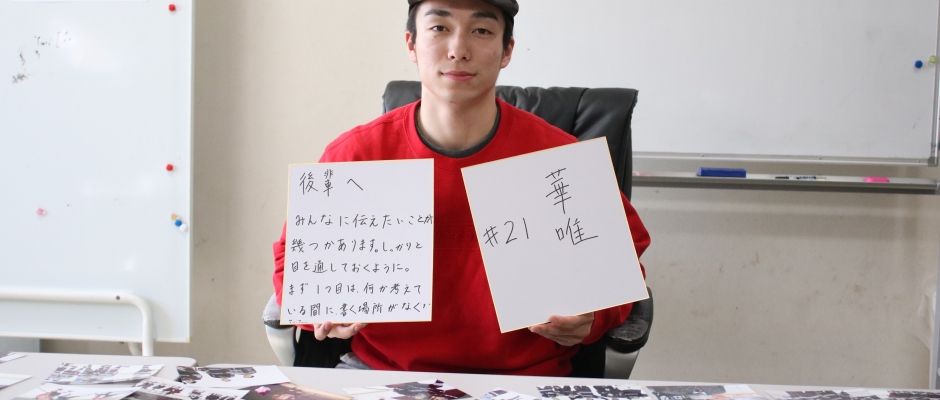 後輩へ
みんなに伝えたいことが
幾つかあります。しっかりと
目を通しておくように。
まず1つ目は、何か考えて
いる間に、書く場所がなくな
華
#21 唯